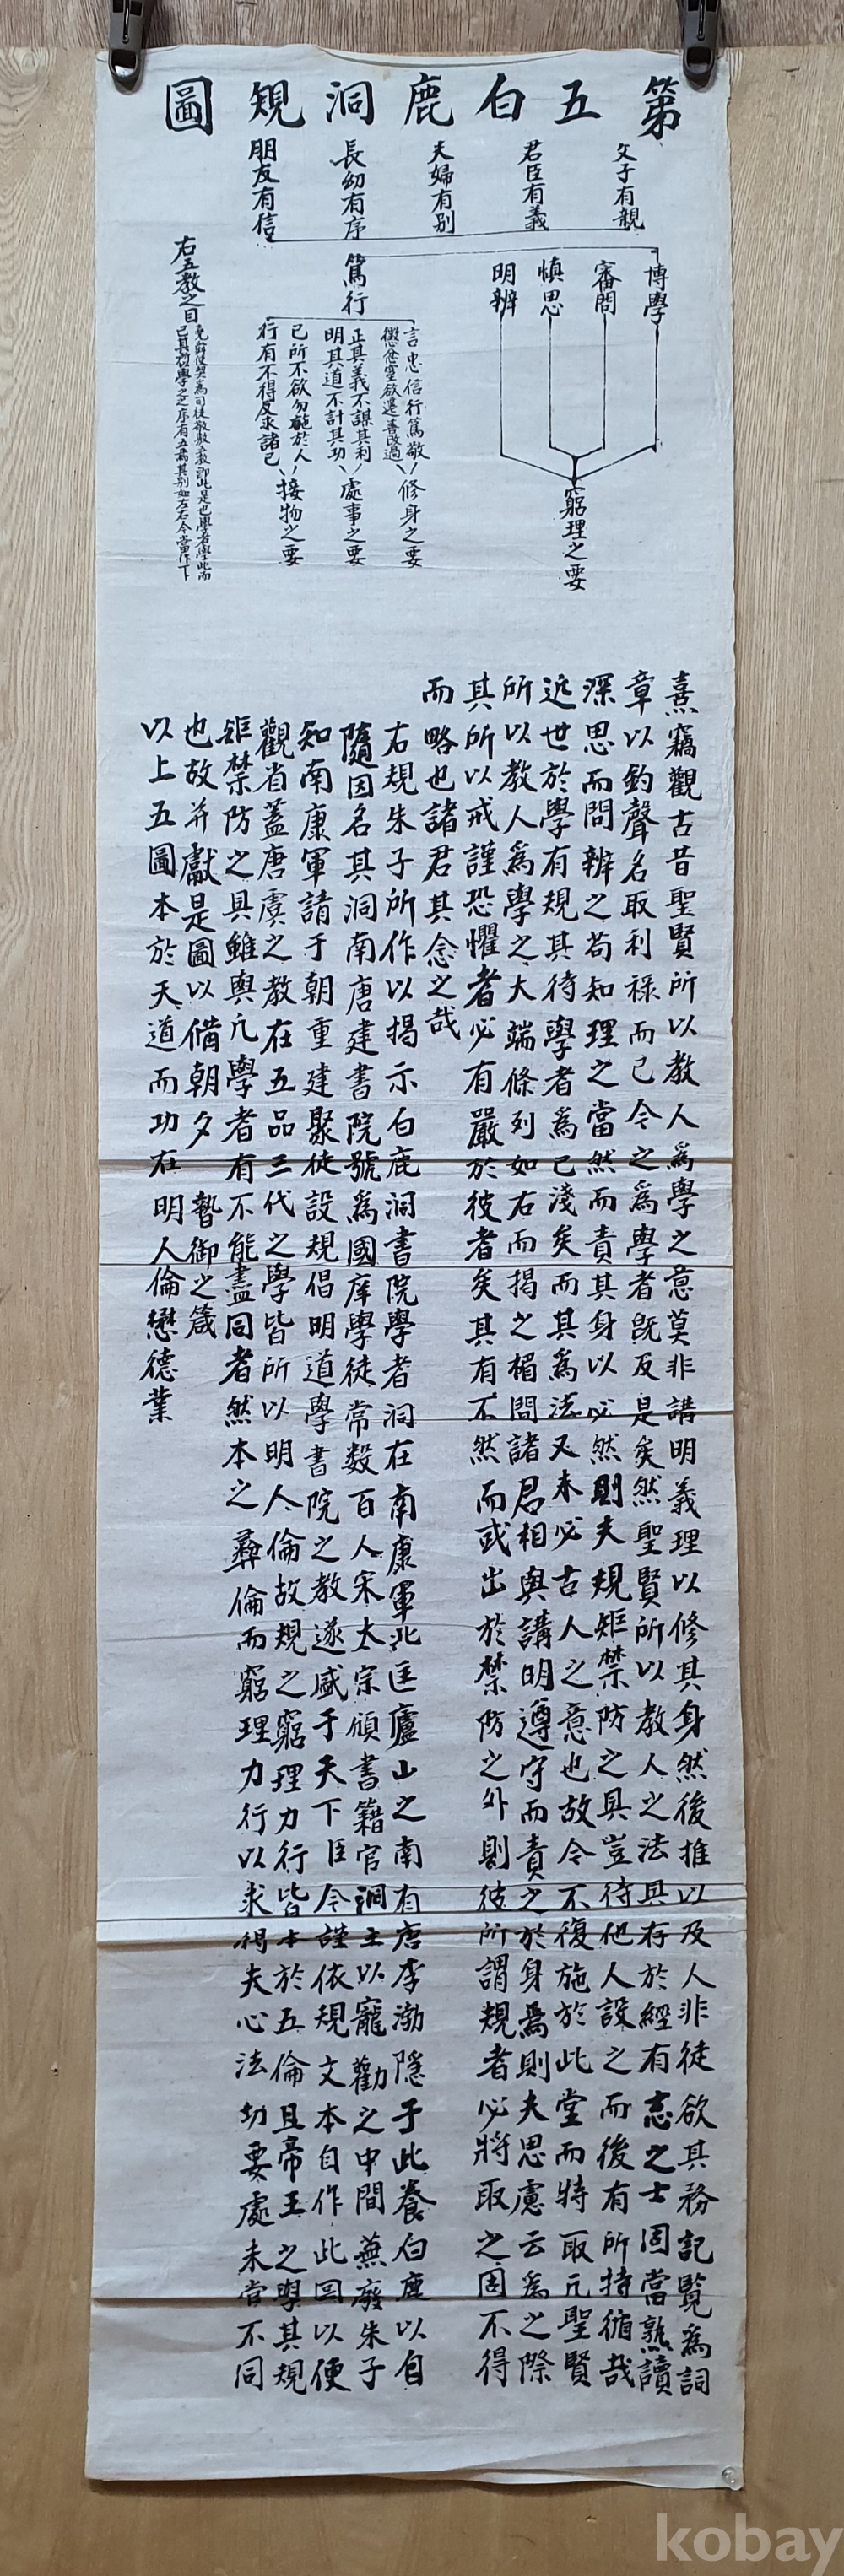 第五白鹿洞規圖
父子有親
君臣有義
夫婦有別
長幼有序
朋友有信
博學
審問
慎思
明辨
窮理之要
篤行
言忠信行篤敬
懲忿窒欲遷善改過
修身之要
正其義不謀其利
明其道不計其功
處事之要
己所不欲勿施於人
行有不得反求諸己
接物之要
右五教之目
堯舜使契為司徒敬敷五教即此是也學者學此而
已其所以學之之序有五焉其別如左右今當作下
熹竊觀古昔聖賢所以教人爲學之意莫非講明義理以修其身然後推以及人非徒欲其務記覽爲詞
章以釣聲名取利祿而已今之爲學者旣反是矣然聖賢所以教人之法具存於經有志之士固當熟讀
深思而問辨之苟知理之當然而責其身以必然則夫規矩禁防之具豈待他人設之而後有所持循哉
近世於學有規其待學者爲已淺矣而其爲法又未必古人之意也故今不復施於此堂而特取凡聖賢
所以教人爲學之大端條列如右而揭之楣間諸君相與講明遵守而責之於身焉則夫思慮云爲之際
其所以戒謹恐懼者必有嚴於彼者矣其有不然而或出於禁防之外則彼所謂規者必將取之固不得
而略也諸君其念之哉
右規朱子所作以揭示白鹿洞書院學者洞在南康軍北匡廬山之南有唐李渤隱于此養白鹿以自
隨因名其洞南唐建書院號爲國庠學徒常數百人宋太宗頒書籍官洞主以寵勸之中間蕪廢朱子
知南康軍請于朝重建聚徒設規倡明道學書院之教遂盛于天下臣今謹依規文本自作此圖以便
觀省蓋唐虞之教在五品三代之學皆所以明人倫故規之窮理力行皆本於五倫且帝王之學其規
矩禁防之具雖與凡學者有不能盡同者然本之彝倫而窮理力行以求得夫心法切要處未嘗不同
也故并獻是圖以備朝夕暬御之箴
以上五圖本於天道而功在明人倫懋德業
kobay